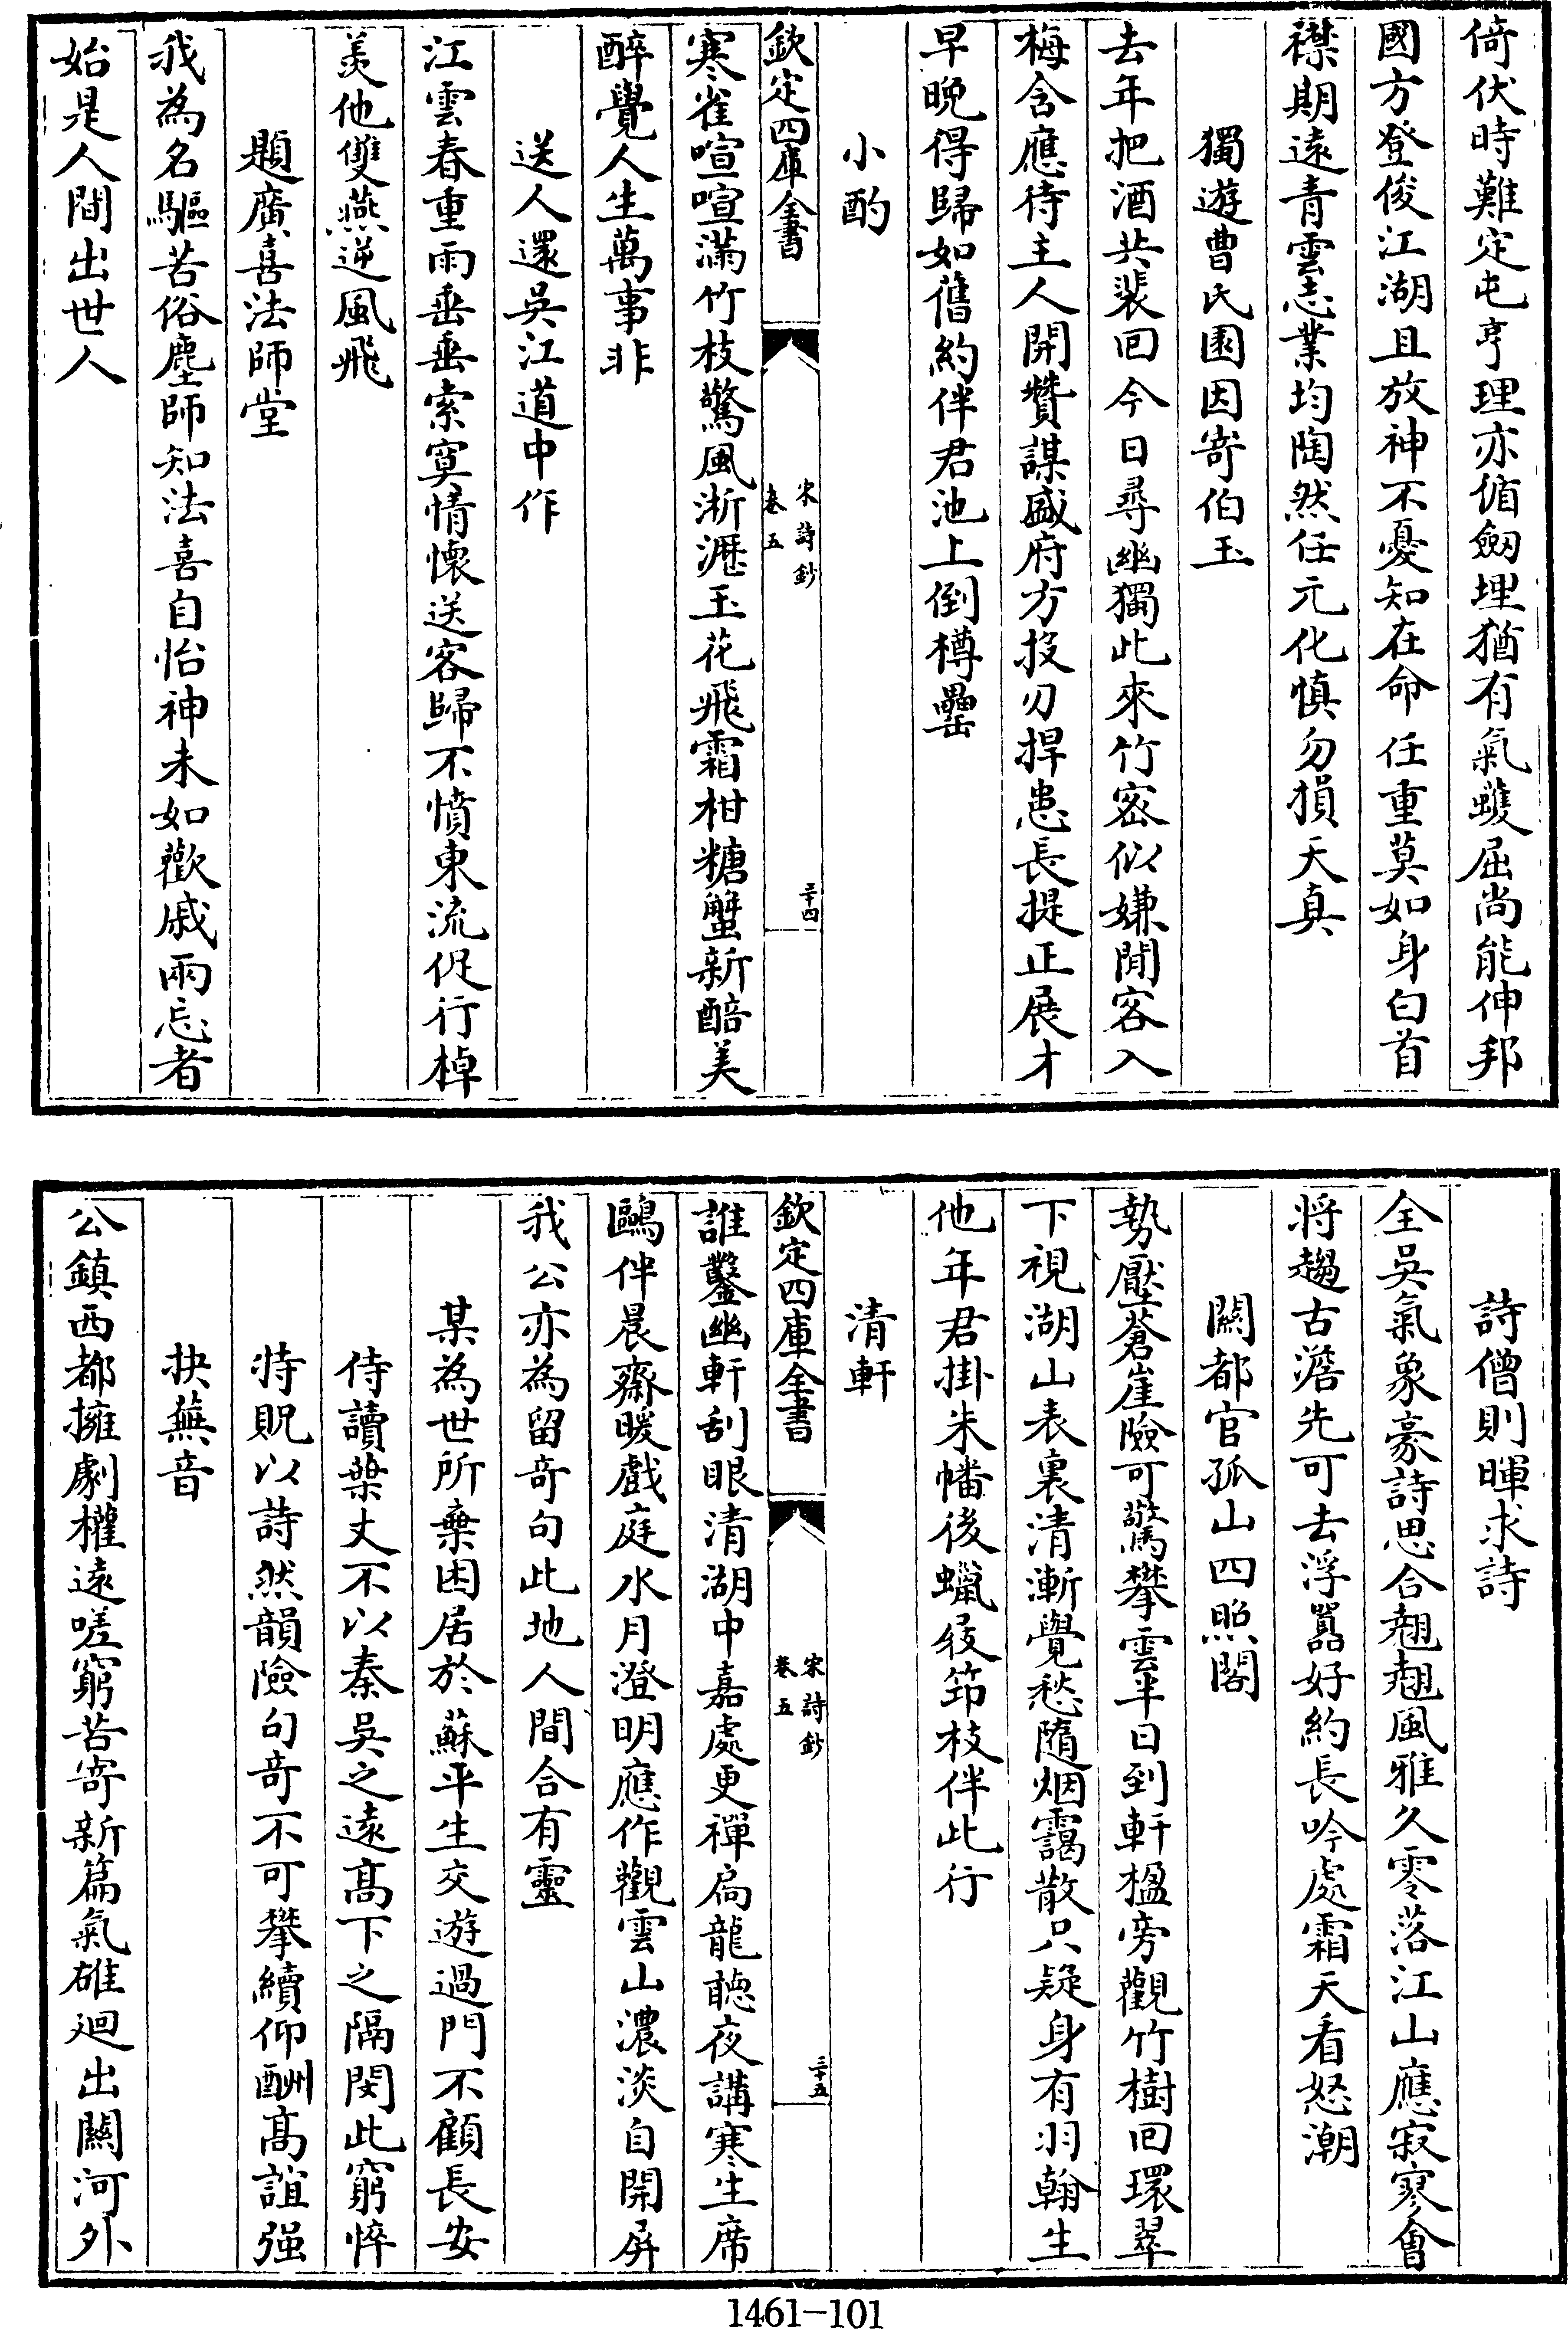 倚伏時難定屯亨理亦循劔埋猶有氣蠖屈尚能伸邦
國方登俊江湖且放神不憂知在命任重莫如身白首
襟期遠青雲志業均陶然任元化慎勿損天真
獨遊曹氏園因寄伯玉
去年把酒共裴回今日尋幽獨此來竹密似嫌閒客入
梅含應待主人開贊謀盛府方投刃捍患長提正展才
早晚得歸如舊約伴君池上倒樽罍
小酌
欽定四庫全書
宋詩鈔
卷五
三十四
寒雀喧喧滿竹枝驚風淅瀝玉花飛霜柑糖蟹新醅美
醉覺人生萬事非
送人還吳江道中作
江雲春重雨垂垂索寞情懷送客歸不憤東流促行棹
羨他雙燕逆風飛
題廣喜法師堂
我為名驅苦俗塵師知法喜自怡神未如歡戚兩忘者
始是人間出世人
詩僧則暉求詩
全吳氣象豪詩思合翹翹風雅久零落江山應寂寥會
將趨古澹先可去浮囂好約長吟處霜天看怒潮
關都官孤山四照閣
勢壓蒼崖險可驚攀雲半日到軒楹旁觀竹樹回環翠
下視湖山表裏清漸覺愁隨烟靄散只疑身有羽翰生
他年君掛朱幡後蠟屐笻枝伴此行
清軒
欽定四庫全書
宋詩鈔
卷五
三十五
誰鑿幽軒刮眼清湖中嘉處更禪扃龍聽夜講寒生席
鷗伴晨齋暖戲庭水月澄明應作觀雲山濃淡自開屏
我公亦為留奇句此地人間合有靈
某為世所棄困居於蘇平生交遊過門不顧長安
侍讀葉丈不以秦吳之遠髙下之隔閔此窮悴
特貺以詩然韻險句奇不可攀續仰酬髙誼强
抉蕪音
公鎮西都擁劇權遠嗟窮苦寄新篇氣雄迴出關河外
1461-101